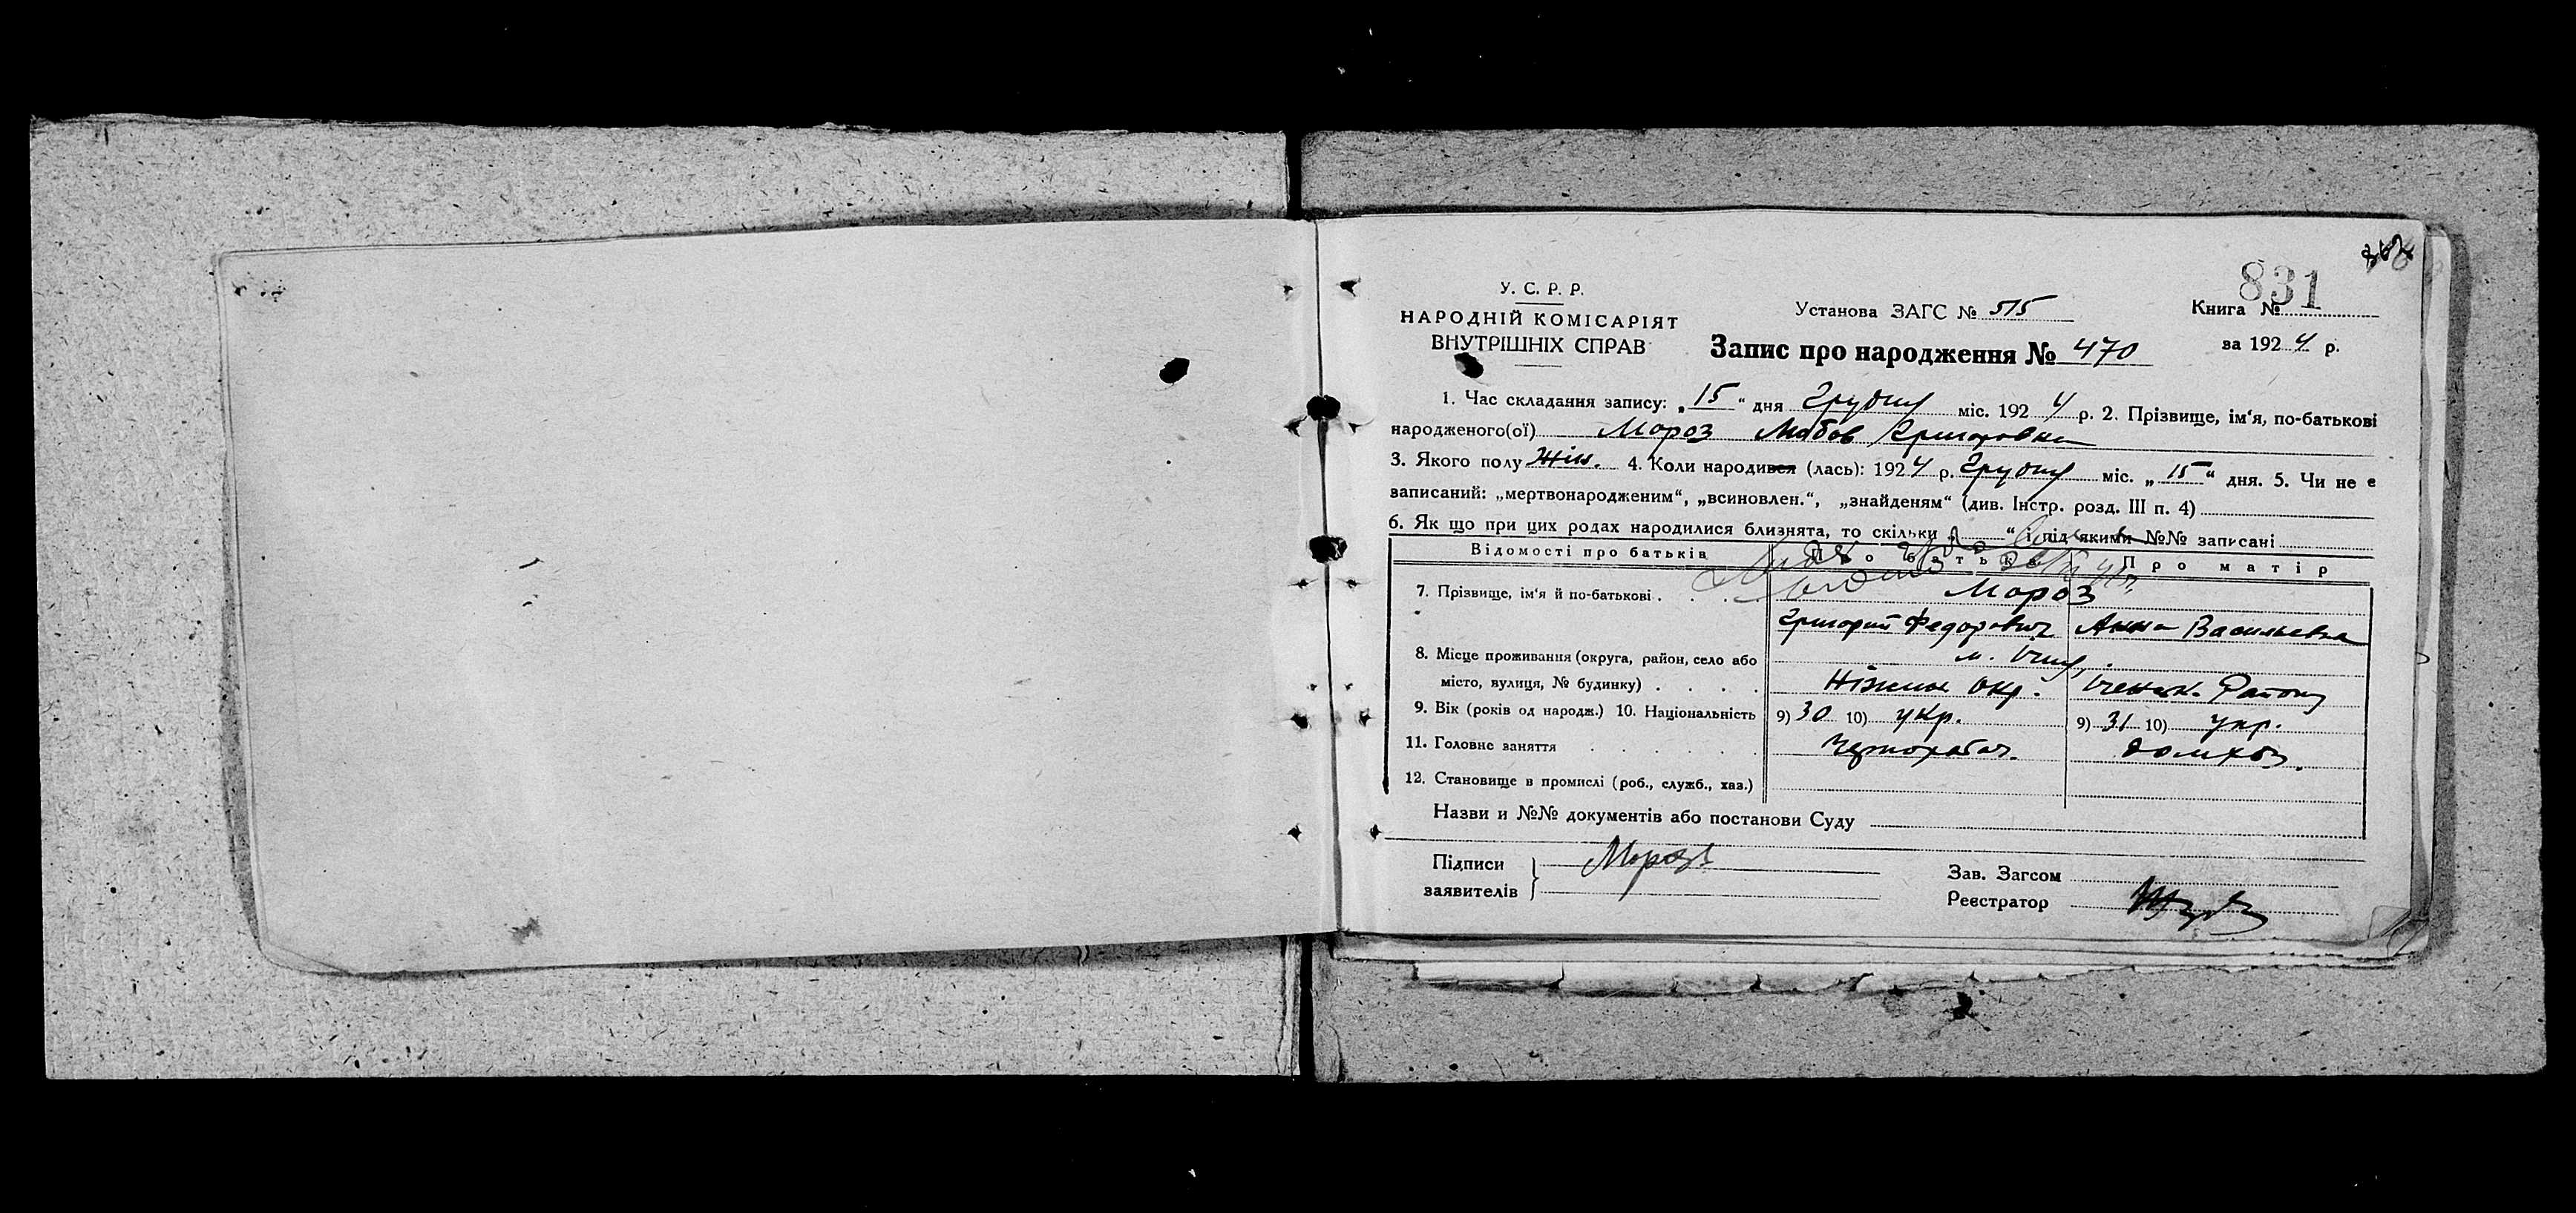 831
У. С. Р. Р.
НАРОДНІЙ КОМІСАРІЯТ
ВНУТРІШНІХ СПРАВ
Установа ЗАГС № 515
Книга №
Запис про народження № 470
за 1924 р.
1. Час складання запису: „15“ дня Грудня міс. 1924 р. 2. Прізвище, ім‘я, по-батькові
народженого(ої) Мороз Любов Григоровна
3. Якого полу Жін. 4. Коли народився (лась): 1924 р. Грудня міс. „15“ дня. 5. Чи не є
записаний: „мертвонародженим“, „всиновлен.“, „знайденям“ (див. Інстр. розд. III п. 4)
6. Як що при цих родах народилися близнята, то скільки „ “ і під якими №№ записані
Відомості про батьків Про батька Про матір
7. Прізвище, ім‘я й по-батькові . . . Мороз
Григорий Федорович Анна Васильевна
8. Місце проживання (округа, район, село або м.
місто, вулиця, № будинку) . . . . Ніжин окр. Району
9. Вік (років од народж.) 10. Національність 9) 30 10) укр. 9) 31 10) укр.
11. Головне заняття . . . . . . Чернорабоч. домхоз.
12. Становище в промислі (роб., служб., хаз.)
Назви и №№ документів або постанови Суду
Підписи
заявителів
Мороз
Зав. Загсом
Реєстратор